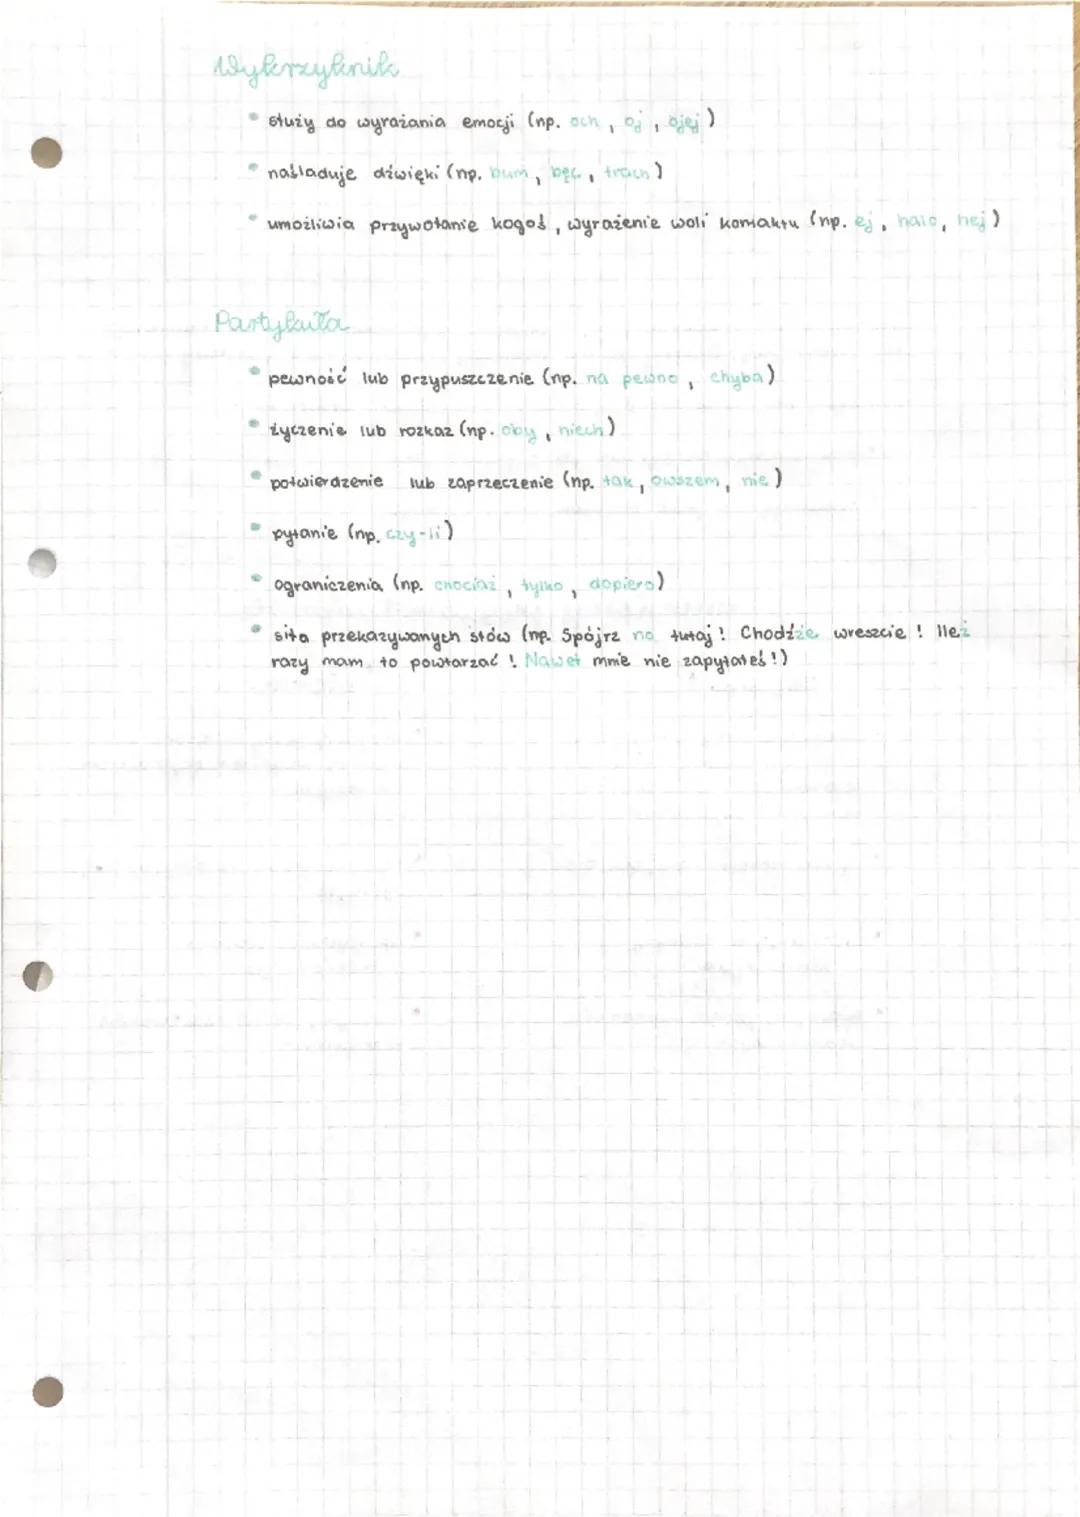 Wykrzyknik
• służy do wyrażania emocji (np. och, oj, ojej)
• naśladuje dźwięki (np. bum, bęc, trach)
• umożliwia przywołanie kogoś, wyrażenie woli kontaktu (np. ej, halo, hej)
Partykuła
• pewność lub przypuszczenie (np. na pewno, chyba)
• życzenie lub rozkaz (np. oby, niech)
• potwierdzenie lub zaprzeczenie (np. tak, owszem, nie)
• pytanie (np. czy-li)
• ograniczenia (np. chociaż, tylko, dopiero)
• siła przekazywanych słów (np. Spójrz no tutaj! Chodźże wreszcie! Ileż
razy mam to powtarzać! Nawet mnie nie zapytałeś!)